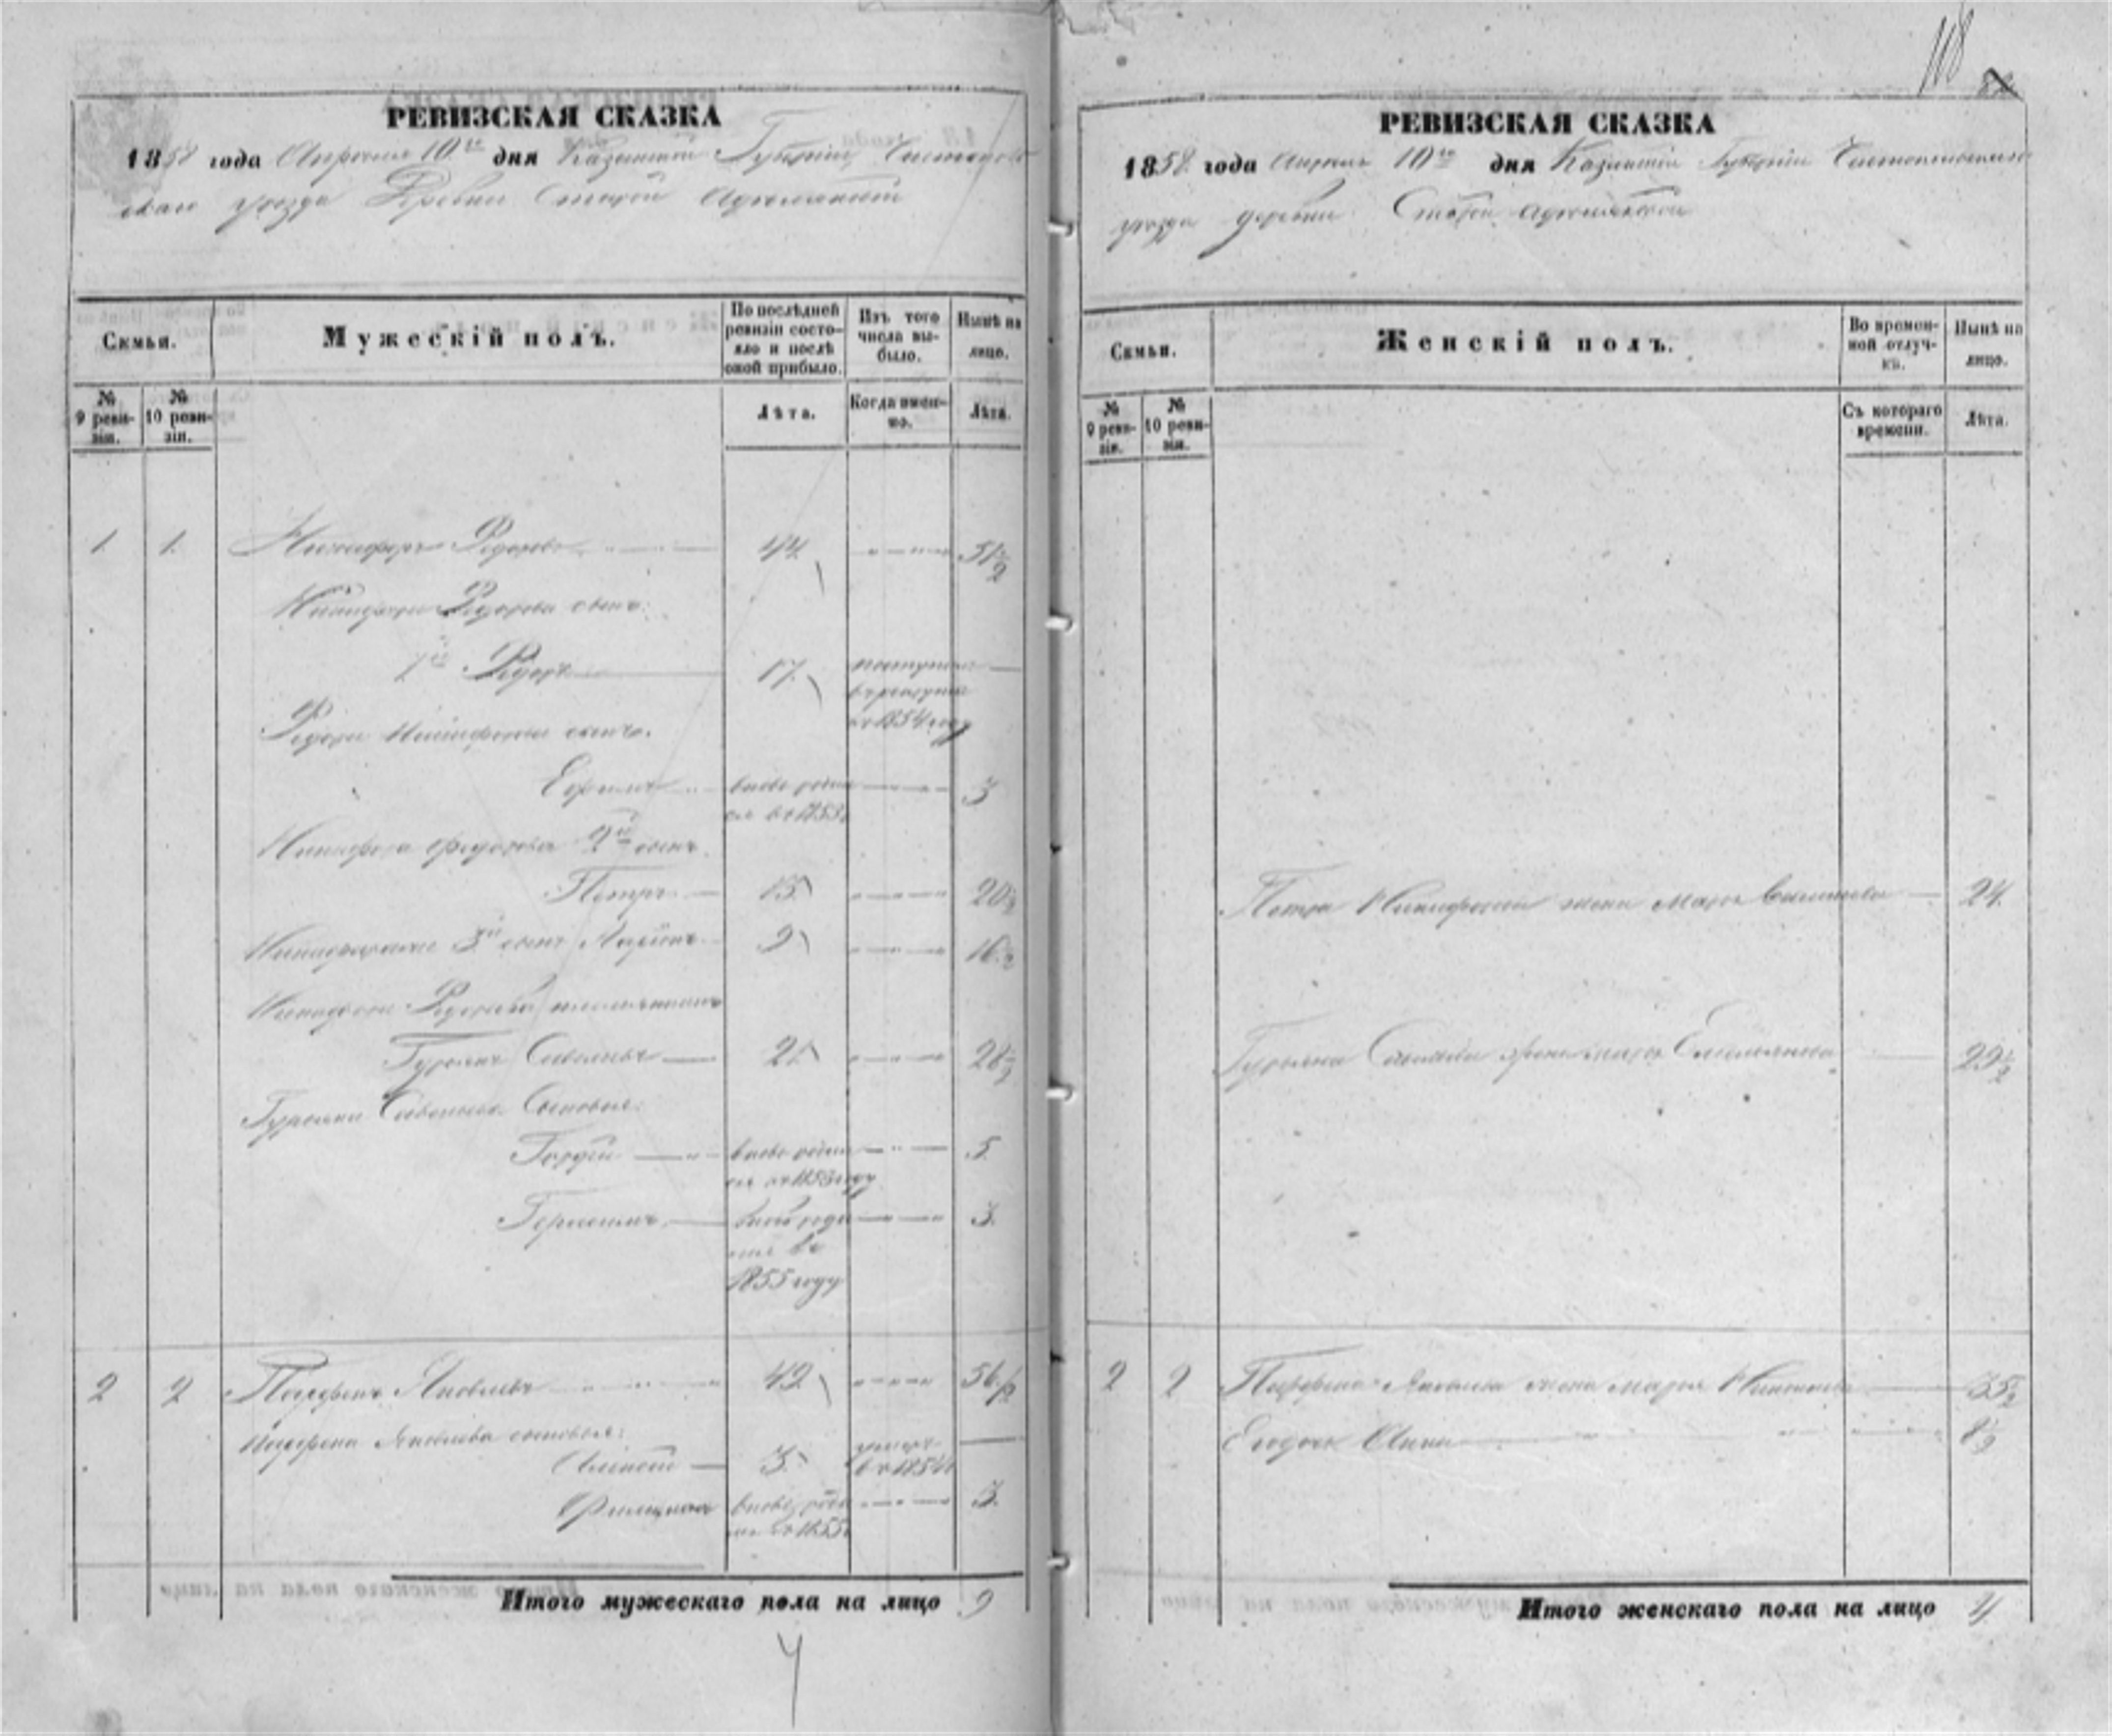 118
РЕВИЗСКАЯ СКАЗКА
1858 года Апреля 10го дня Казанской Губернии Чистополь
скаго уезда Деревни Старой
Семьи.
Мужескій полъ.
По послѣдней ревизіи состояло и послѣ оной прибыло.
Изъ того числа выбыло.
Нынѣ на лицо.
№ 9 ревизіи.
№ 10 ревизіи.
Лѣта.
Когда именно.
Лѣта.
1. 1. Никифоръ Федоровъ 44 51½
Никифора Федорова сынъ:
1й Федоръ 17 поступилъ
в рекруты
въ 1854 году
Федора Никифорова сынъ.
Ефимъ вновь роди 3
ся въ 1853
Никифора Федорова 2й сынъ
Петръ 13 20½
Никифорова 3й сынъ 9 16½
Никифора Федорова племянникъ
Гурьянъ Савельевъ 21 28½
Гурьяна Савельева Сыновья:
Гордей вновь роди 5
ся въ 1853 году
Герасимъ вновь роди 3.
ся въ
1855 году
2 2 Парфенъ Яковлевъ 49 56½
Парфена Яковлева сыновья:
Алексей 3 умеръ
въ 1854
вновь роди 3.
ся въ 1855
Итого мужескаго пола на лицо 9
РЕВИЗСКАЯ СКАЗКА
1858 года Апреля 10го дня Казанской Губернии Чистопольскаго
уезда деревни Старой
Семьи.
Женскій полъ.
Во временной отлучкѣ.
Нынѣ на лицо.
№ 9 ревизіи.
№ 10 ревизіи.
Съ котораго времени.
Лѣта.
Петра Никифорова жена Марья 24.
Гурьяна Савельева жена Марья Емельянова 29½
2 2 Парфена Яковлева жена Марья 35½
Его дочь Анна 8½
Итого женскаго пола на лицо 4